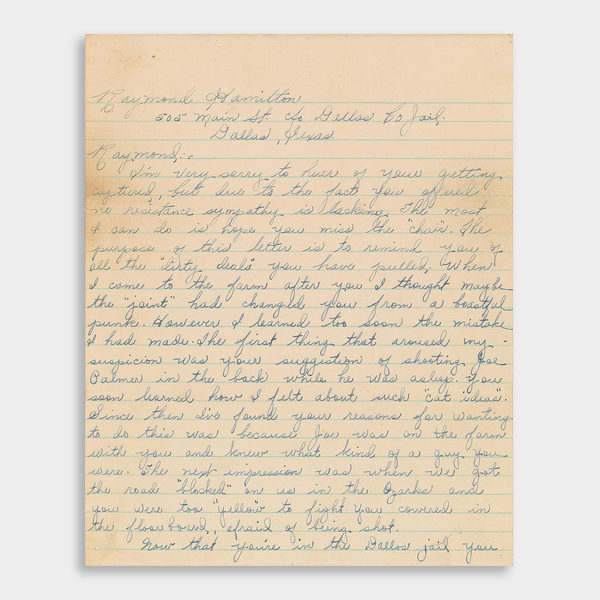 Raymond Hamilton
505 Main St. c/o Dallas Co Jail.
Dallas, Texas.
Raymond:-
I'm very sorry to hear of your getting
captured, but due to the fact you offered
no resistance sympathy is lacking. The most
I can do is hope you miss the "chair". The
purpose of this letter is to remind you of
all the "dirty deals" you have pulled. When
I came to the farm after you I thought maybe
the "joint" had changed you from a boastful
punk. However I learned too soon the mistake
I had made. The first thing that aroused my
suspicion was your suggestion of shooting Joe
Palmer in the back while he was asleep. You
soon learned how I felt about such "cat ideas".
Since then I've found your reasons for wanting
to do this was because Joe was on the farm
with you and knew what kind of a guy you
were. The next impression was when we got
the road "blocked" on us in the Ozarks and
you were too "yellow" to fight. You cowered in
the floorboard, afraid of being shot.
Now that you're in the Dallas jail you